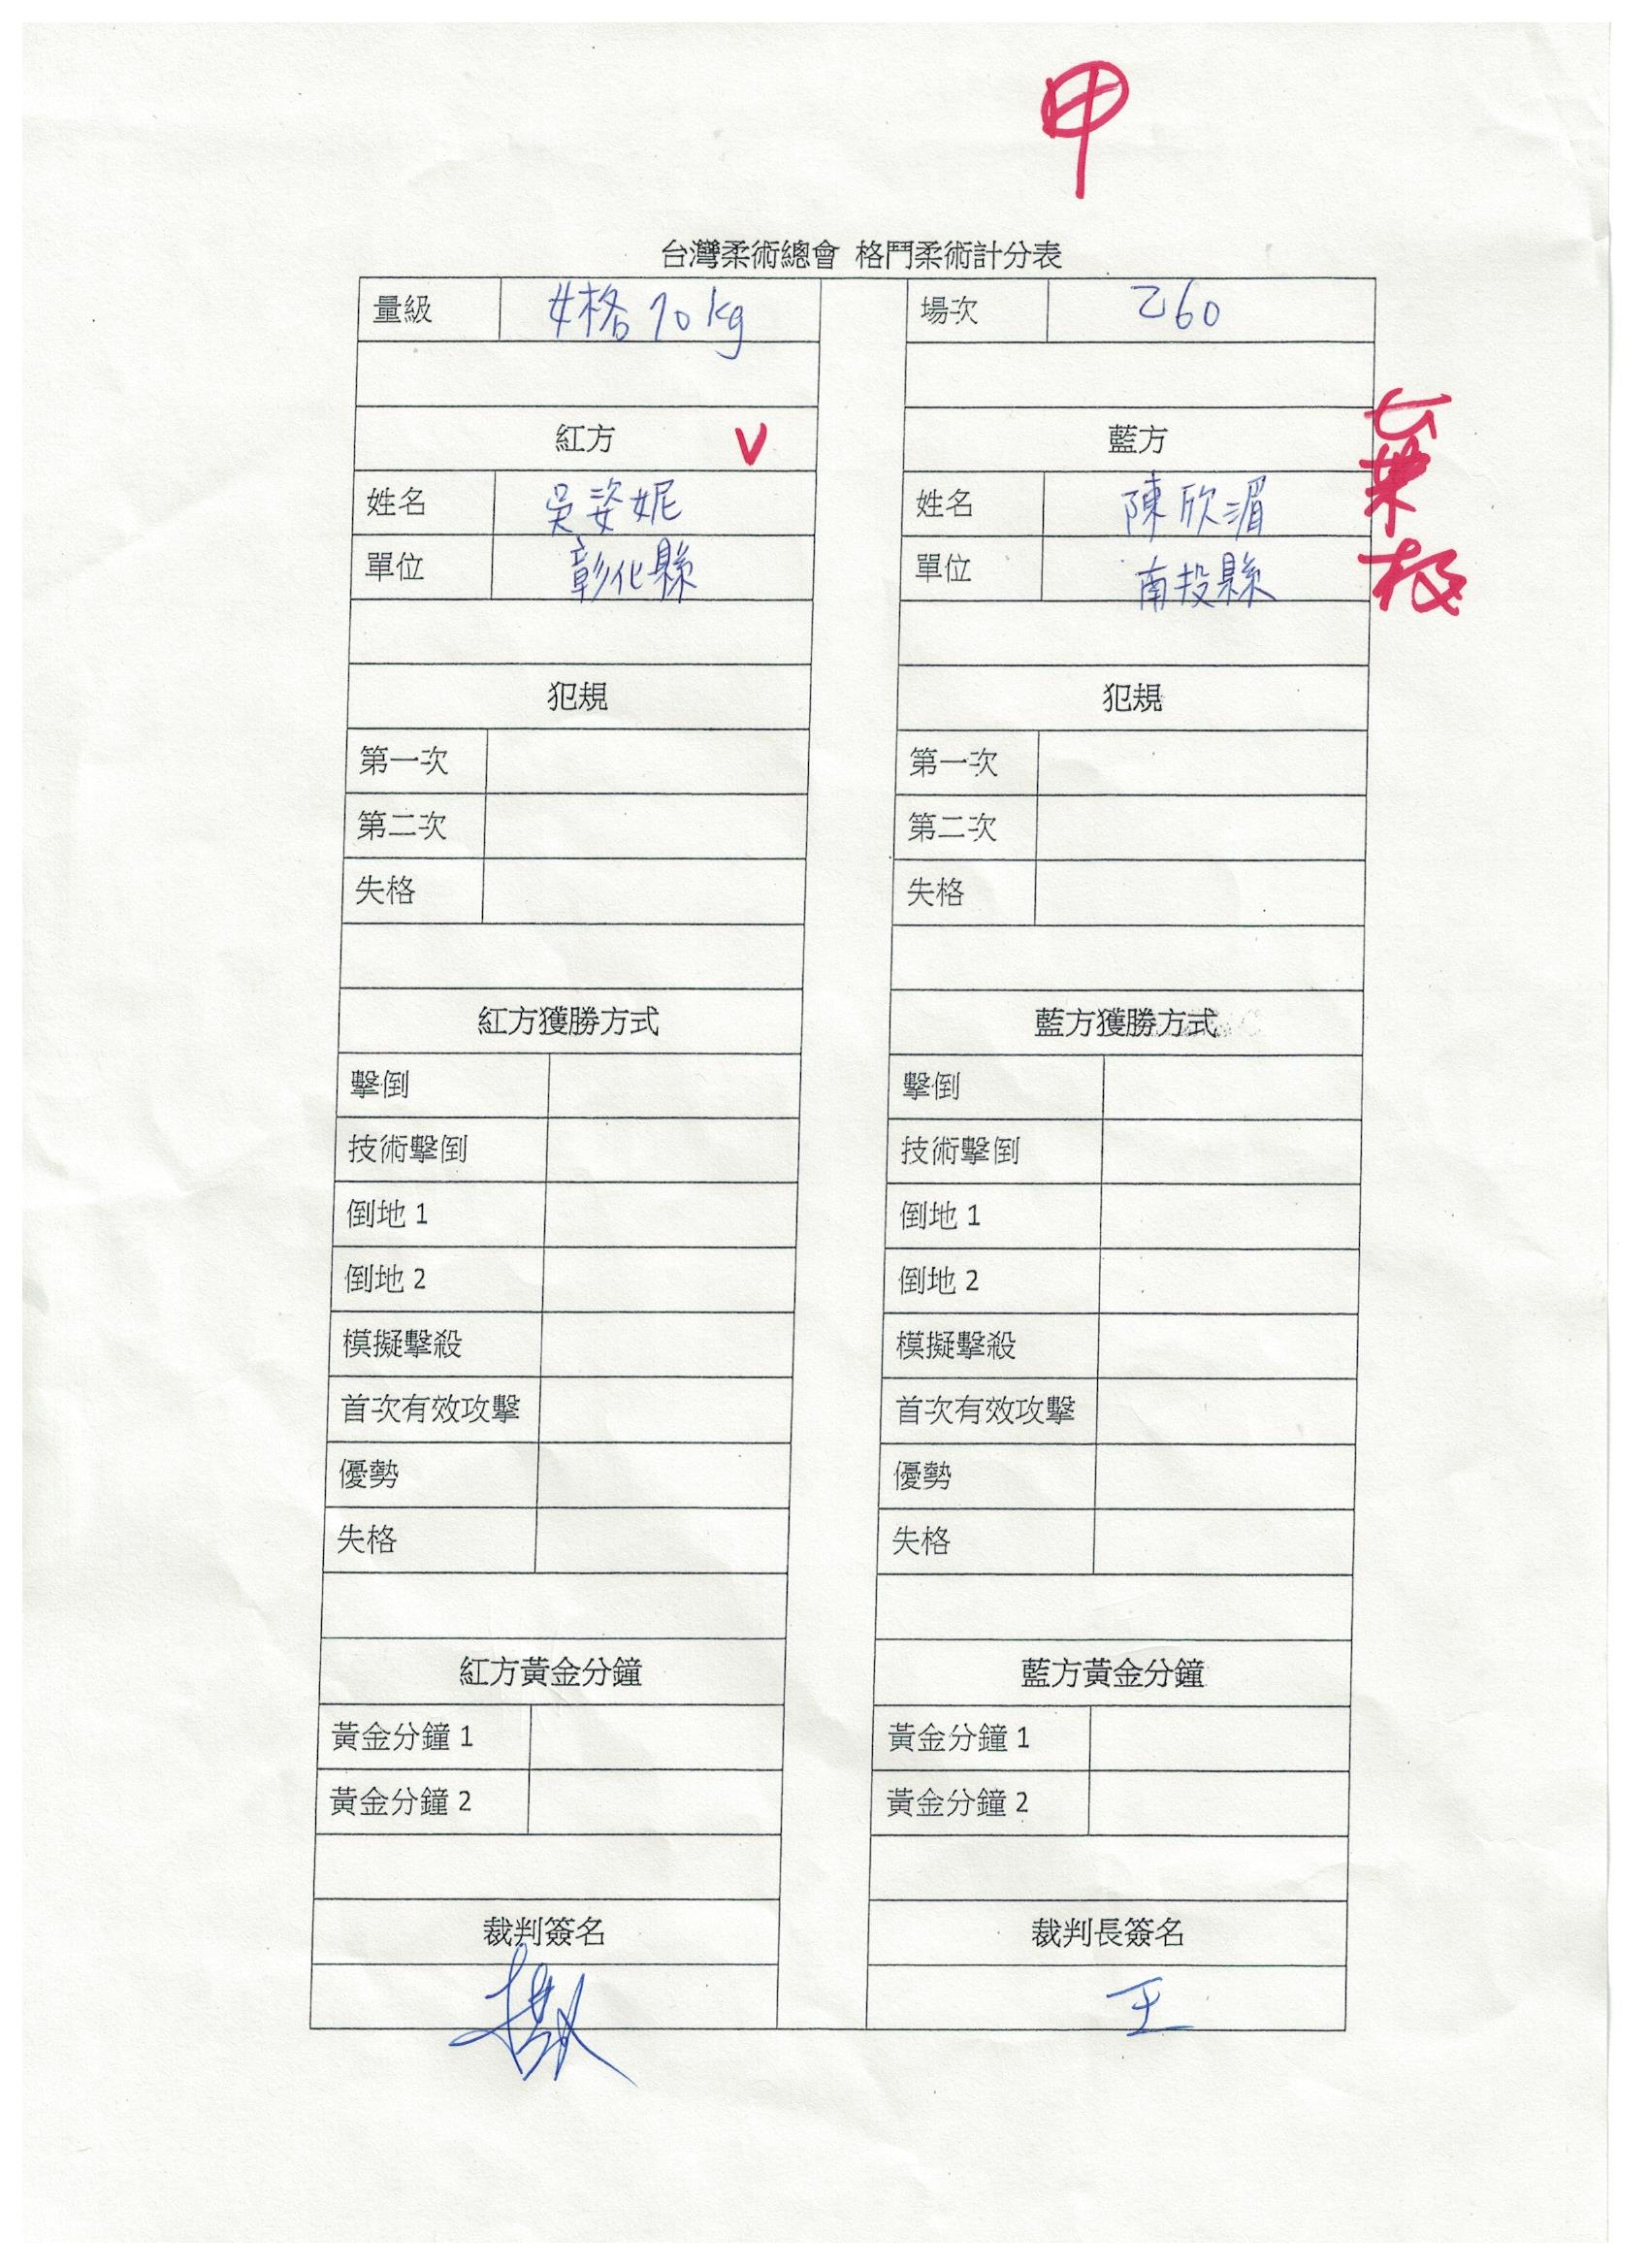 甲
台灣柔術總會 格鬥柔術計分表
量級 女格 70 kg 場次 乙60
紅方 V 藍方
姓名 吳姿妮 姓名 陳欣湄
單位 彰化縣 單位 南投縣
棄權
犯規 犯規
第一次 第一次
第二次 第二次
失格 失格
紅方獲勝方式 藍方獲勝方式
擊倒 擊倒
技術擊倒 技術擊倒
倒地 1 倒地 1
倒地 2 倒地 2
模擬擊殺 模擬擊殺
首次有效攻擊 首次有效攻擊
優勢 優勢
失格 失格
紅方黃金分鐘 藍方黃金分鐘
黃金分鐘 1 黃金分鐘 1
黃金分鐘 2 黃金分鐘 2
裁判簽名 裁判長簽名
王